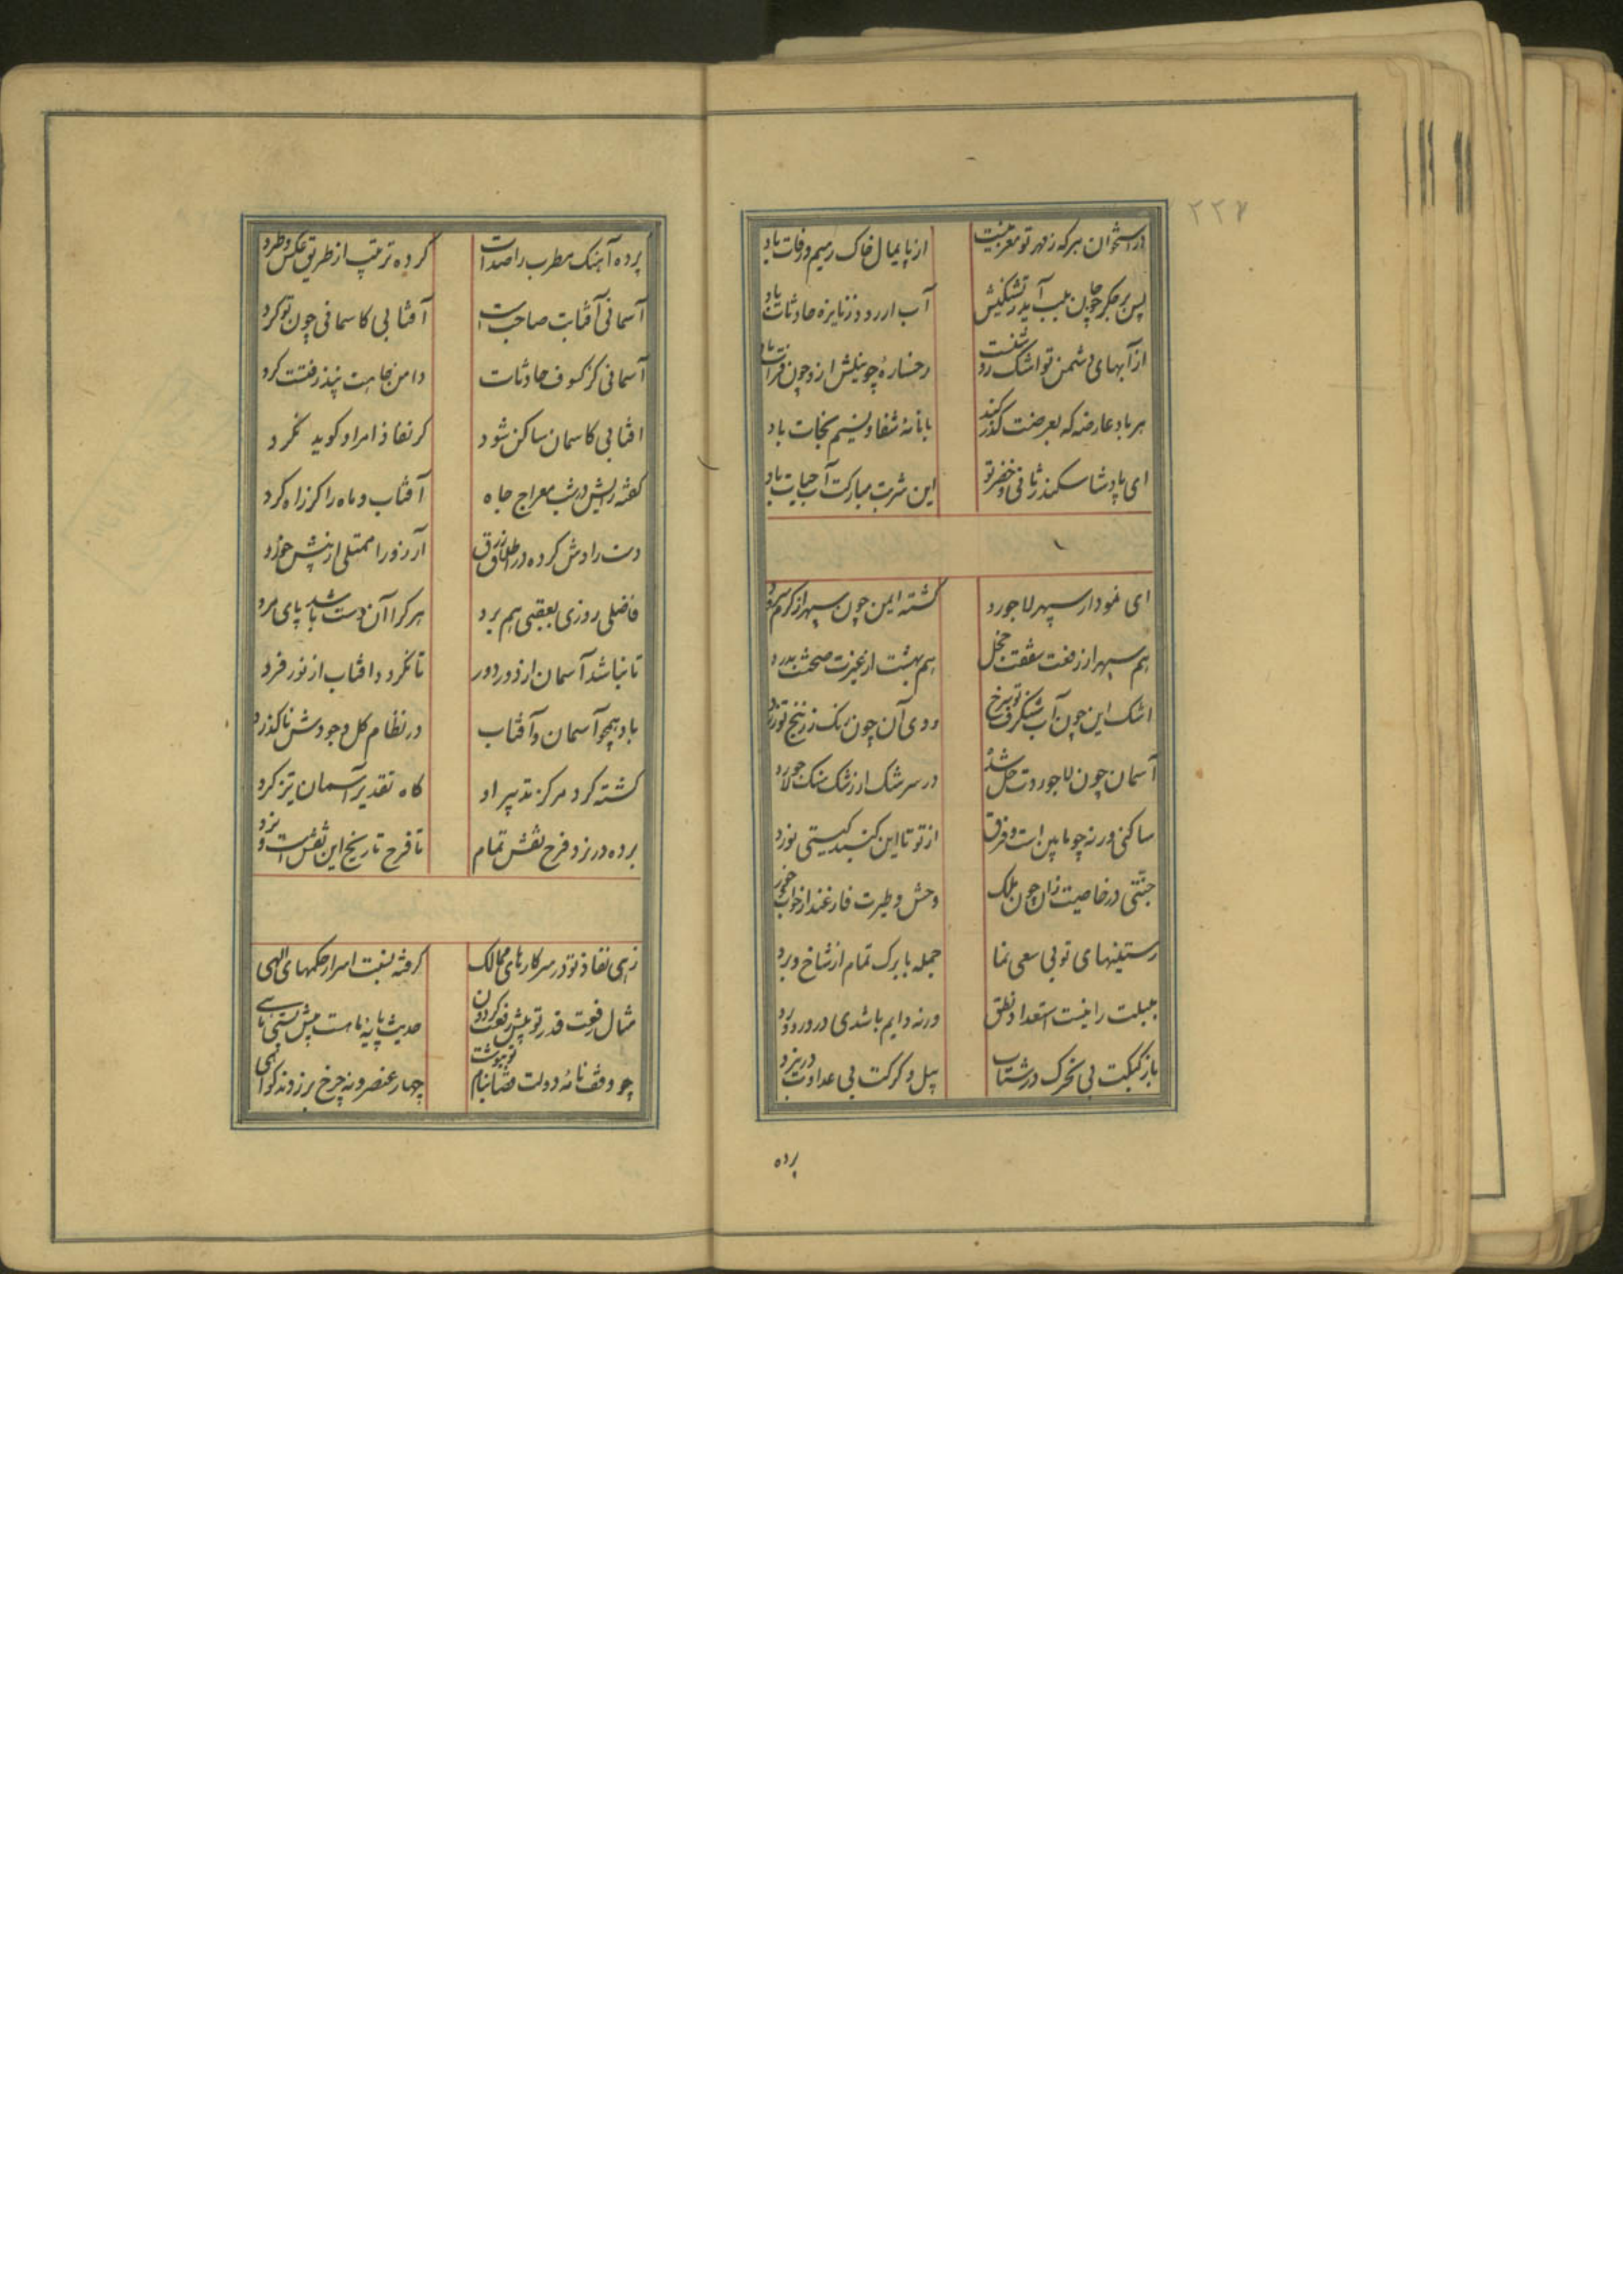 ۲۲۷
در استخوان هر که ز مهر تو مغز نیست از پایمال خاک رمیم و رفات باد
پس بر جگر چو جان بلب آید ز تشنگیش آب ار رود ز نایزه حادثات باد
از آبهای دشمن تو اشک روشنست رخساره چو نیلش ازو چون فرات باد
هر باد عارضه که بعرضت گذر کند با نامه شفا و نسیم نجات باد
ای پادشا سکندر ثانی و خضر تو این شربت مبارکت آب حیات باد
ای نمودار سپهر لاجورد گشته ایمن چون سپهر از گرم و سرد
هم سپهر از رفعت سقفت خجل هم بهشت از غیرت صحنت بدرد
اشک این چون آب شنگرف تو سرخ روی آن چون رنگ زرنیخ تو زرد
آسمان چون لاجوردت حل شده در سرشک از رشک سنگ لاجورد
ساکنی ورنه چو مابین است فرق از تو تا این گنبد گیتی نورد
جنتی در خاصیت زان چون ملک وحش و طیرت فارغند از خواب و خورد
رستنیهای تو بی سعی نما جمله با برگ تمام از شاخ و ورد
بلبلت را نیست استعداد نطق ورنه دایم باشدی در ورد ورد
باز کبکت بی تحرک در شتاب پیل و گرگت بی عداوت در نبرد
پرده
پرده آهنک مطرب را صداست کرده ترتیب از طریق عکس و طرد
آسمانی آفتابت صاحب است آفتابی کاسمانی چون تو کرد
آسمانی کز کسوف حادثات دامن جاهت نپذرفتست کرد
افتابی کاسمان ساکن شود کر نفاذ امر او کوید نکرد
کفته رایش در شب معراج جاه آفتاب و ماه را کز راه کرد
دست رادش کرده در اطلاق رزق آرزو را ممتلی از پیش خورد
فاضلی روزی بعقبی هم برد هر کرا آن دست باشد پای مرد
تا نباشد آسمان از دور دور تا نکردد افتاب از نور فرد
باد همچو آسمان و آفتاب در نظام کل وجودش ناکذرد
کشته کرد مرکز تدبیر او کاه تقدیر آسمان تیز کرد
برده در نرد فرح نقش تمام تا فرح تاریخ این نقش است و نرد
زهی نفاذ تو در سر کارهای ممالک گرفته نسبت اسرار حکمهای الهی
مثال رفعت قدر تو پیش رفعت کردون حدیث پایه ماهست پیش پستی ماهی
چو وقف نامه دولت قضا بنام تو بنوشت چهار عنصر و نه چرخ برزدند کواهی